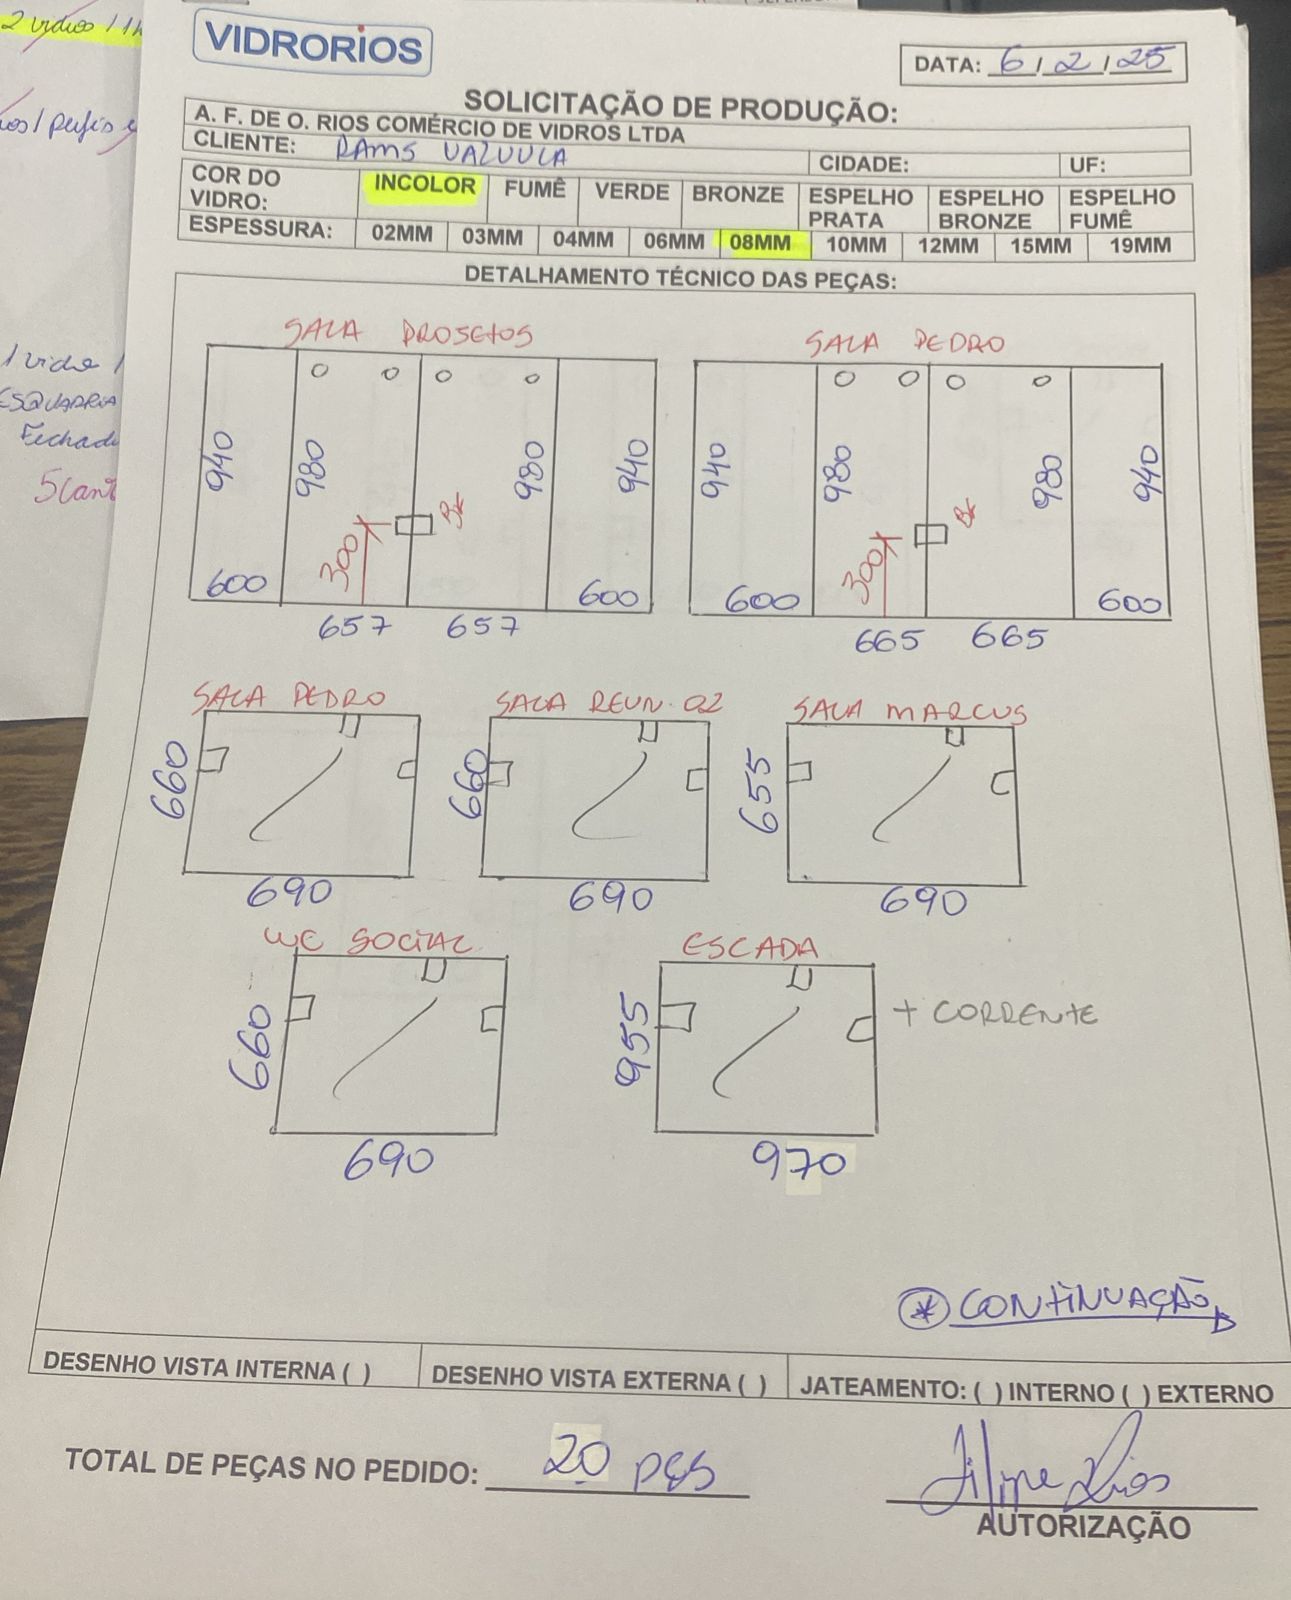 2 vidros / 1
VIDRORIOS
DATA: 6 / 2 / 25
SOLICITAÇÃO DE PRODUÇÃO:
A. F. DE O. RIOS COMÉRCIO DE VIDROS LTDA
CLIENTE: RAMS VALVULA CIDADE: UF:
COR DO VIDRO: INCOLOR FUMÊ VERDE BRONZE ESPELHO PRATA ESPELHO BRONZE ESPELHO FUMÊ
ESPESSURA: 02MM 03MM 04MM 06MM 08MM 10MM 12MM 15MM 19MM
DETALHAMENTO TÉCNICO DAS PEÇAS:
SALA PROJETOS
940 980 980 940
300
600 600
657 657
SALA PEDRO
940 980 980 940
300
600 600
665 665
SALA PEDRO
660
690
SALA REUN. 02
660
690
SALA MARCUS
655
690
WC SOCIAL
660
690
ESCADA
955
+ CORRENTE
970
* CONTINUAÇÃO
DESENHO VISTA INTERNA ( ) DESENHO VISTA EXTERNA ( ) JATEAMENTO: ( ) INTERNO ( ) EXTERNO
TOTAL DE PEÇAS NO PEDIDO: 20 PÇS
Filipe Rios
AUTORIZAÇÃO
1 vidro /
ESQUADRIA